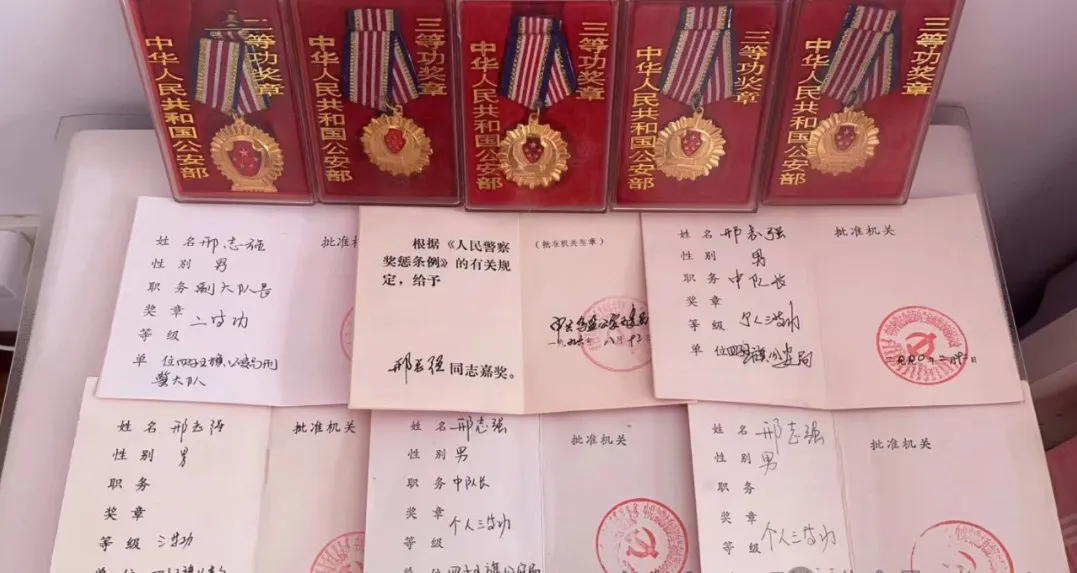 二等功奖章
中华人民共和国公安部
三等功奖章
中华人民共和国公安部
三等功奖章
中华人民共和国公安部
三等功奖章
中华人民共和国公安部
三等功奖章
中华人民共和国公安部
姓名 邢志强
性别 男
职务 副大队长
奖章
等级 二等功
单位 四子王旗公安局刑
警大队
批准机关
根据《人民警察
奖惩条例》的有关规
定，给予
邢志强 同志嘉奖。
（批准机关签章）
姓名 邢志强
性别 男
职务 中队长
奖章
等级 个人三等功
单位 四子王旗公安局
批准机关
姓名 邢志强
性别 男
职务
奖章
等级 三等功
批准机关
姓名 邢志强
性别 男
职务 中队长
奖章
等级 个人三等功
单位 四子王旗公安局
批准机关
姓名 邢志强
性别 男
职务
奖章
等级 个人三等功
批准机关